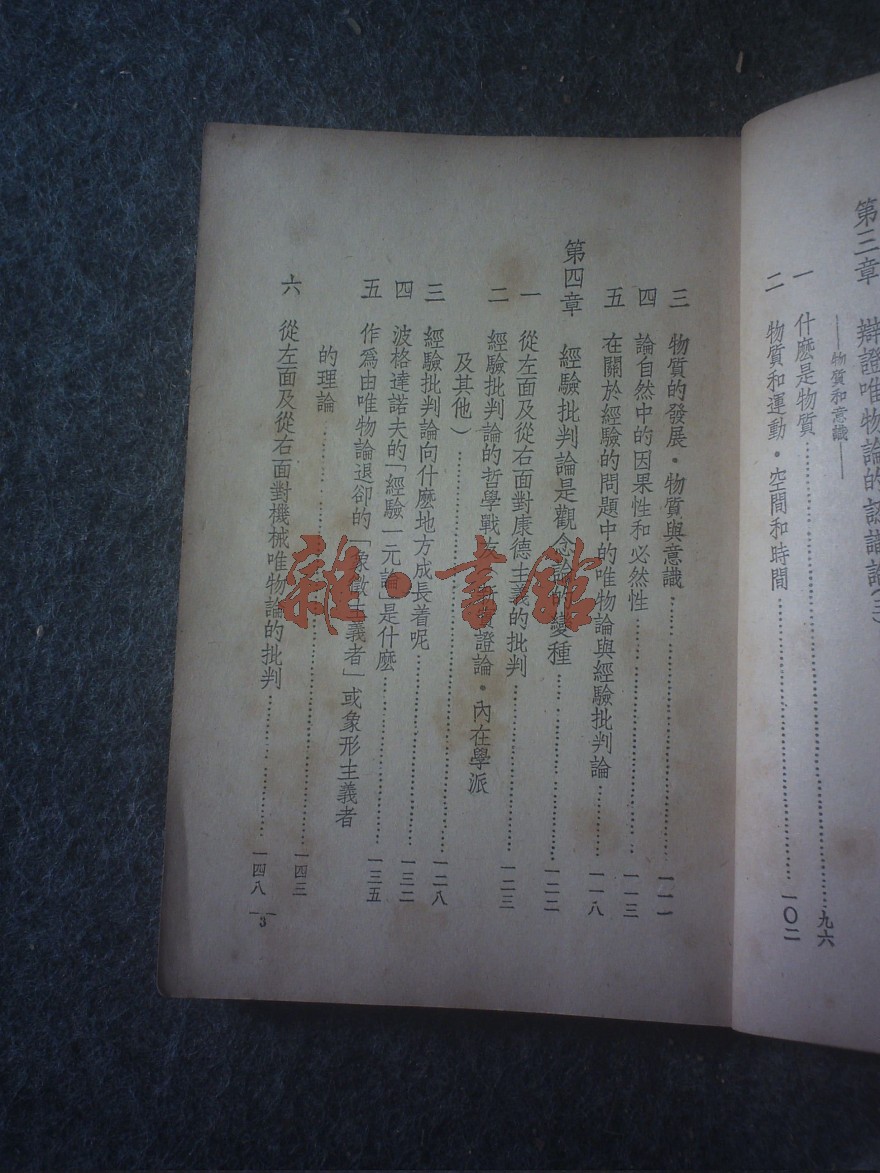 第三章 辯證唯物論的認識論(三)
——物質和意識——
一 什麼是物質……九六
二 物質和運動・空間和時間……一〇二
三 物質的發展・物質與意識……一一一
四 論自然中的因果性和必然性……一一三
五 在關於經驗的問題中的唯物論與經驗批判論……一一八
第四章 經驗批判論是觀念論的變種……一二二
一 從左面及從右面對康德主義的批判……一二三
二 經驗批判論的哲學戰友(新實證論・內在學派
及其他)……一二八
三 經驗批判論向什麼地方成長着呢……一三二
四 波格達諾夫的「經驗一元論」是什麼……一三五
五 作爲由唯物論退卻的「象徵主義者」或象形主義者
的理論……一四三
六 從左面及從右面對機械唯物論的批判……一四八
3
雜・書館